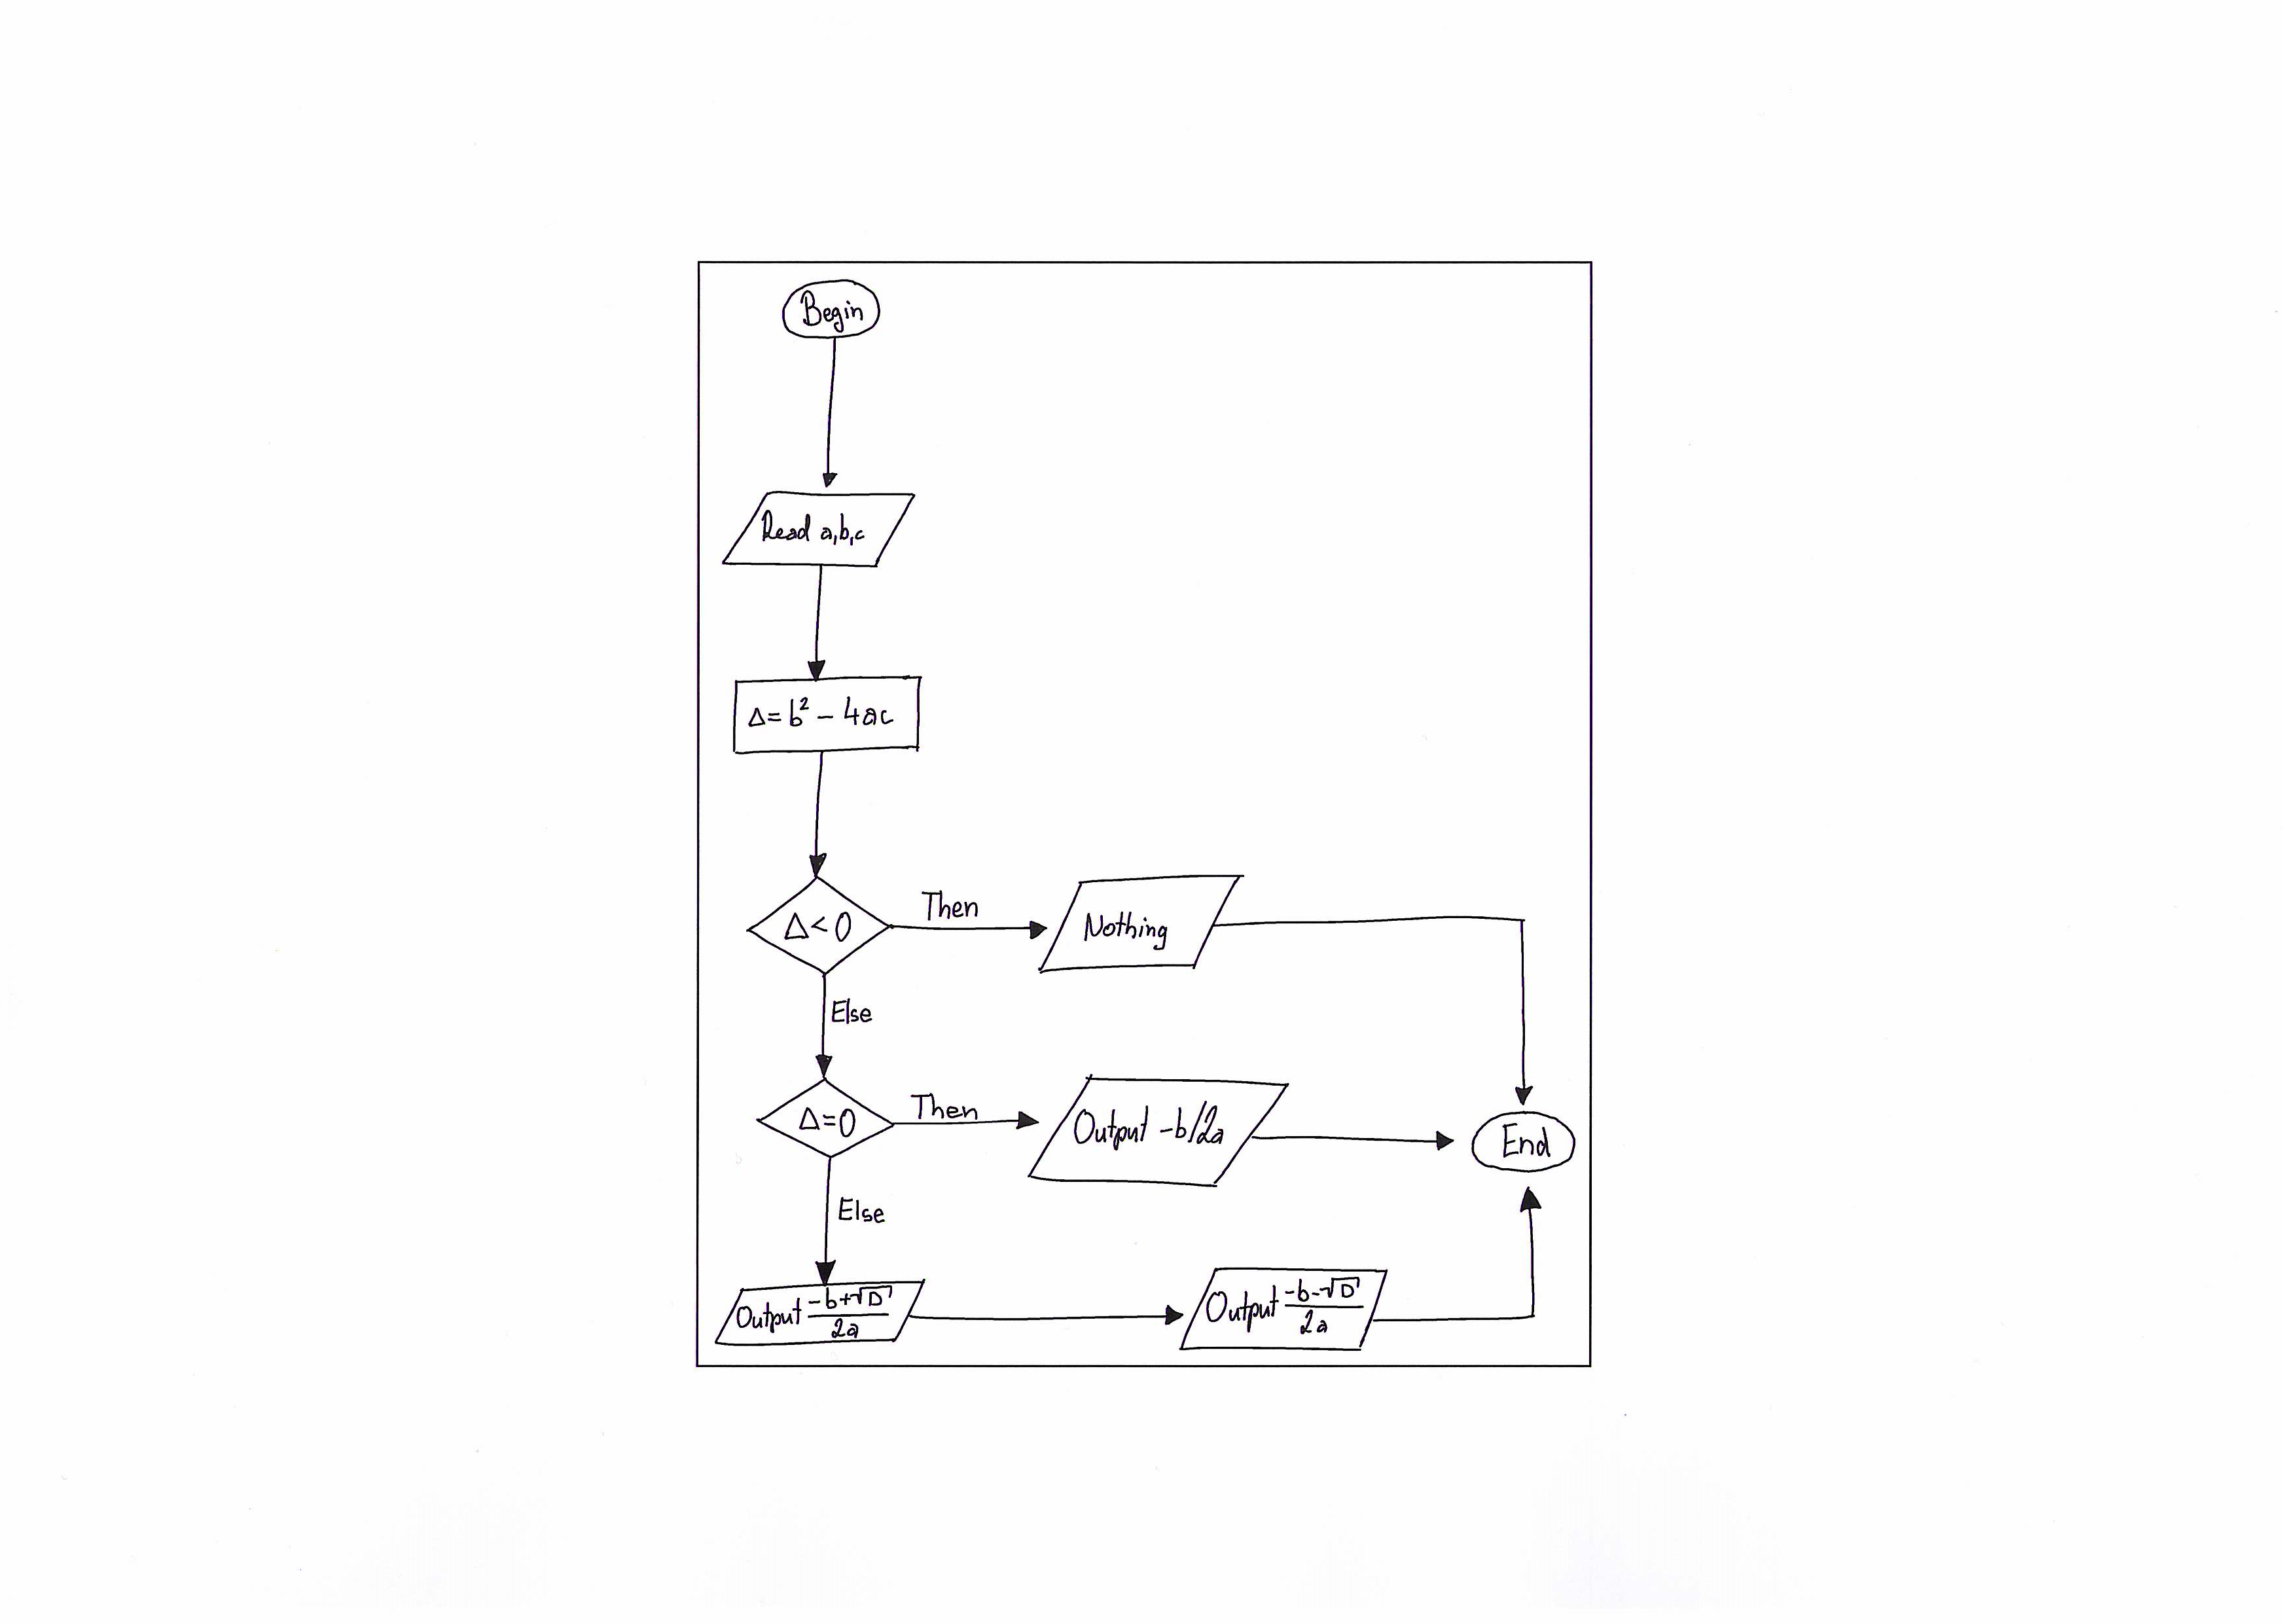 Begin
Read a,b,c
Δ=b² - 4ac
Δ<0
Then
Nothing
Else
Δ=0
Then
Output -b/2a
End
Else
Output -b+√D/2a
Output -b-√D/2a